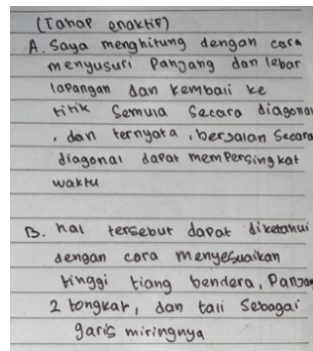 (Tahap enaktif)
A. Saya menghitung dengan cara
menyusuri Panjang dan lebar
lapangan dan kembali ke
titik Semula Secara diagonal
, dan ternyata, berjalan Secara
diagonal dapat mempersingkat
waktu
B. hal tersebut dapat diketahui
dengan cara menyesuaikan
tinggi tiang bendera, Panjang
2 tongkat, dan tali Sebagai
garis miringnya